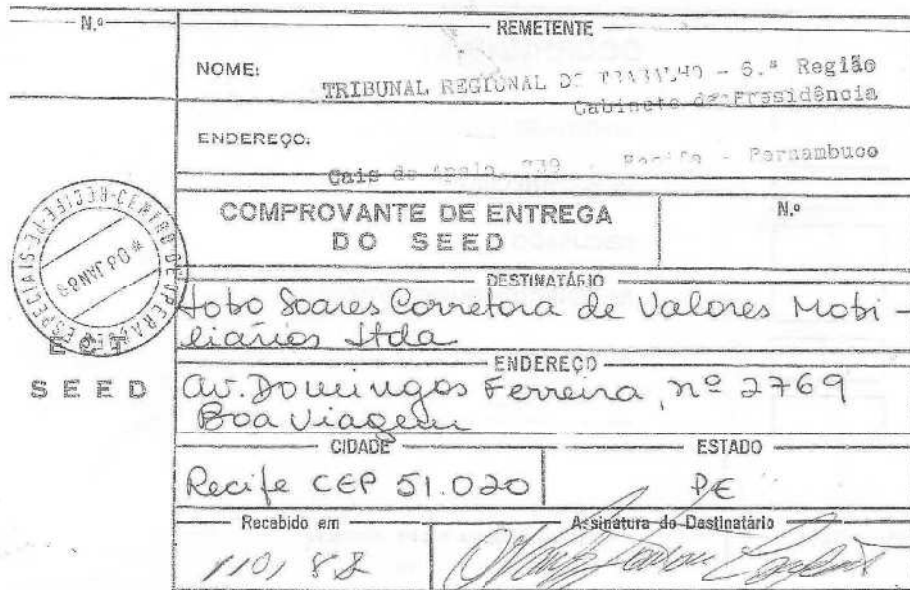 N.º
REMETENTE
NOME:
TRIBUNAL REGIONAL DO TRABALHO - 6.ª Região
Gabinete da Presidência
ENDEREÇO:
Cais do Apolo, 739 - Recife - Pernambuco
COMPROVANTE DE ENTREGA
DO SEED
N.º
CENTRO DE OPERAÇÕES ESPECIAIS
ECT
SEED
DESTINATÁRIO
Lobo Soares Corretora de Valores Mobi-
liários Ltda
ENDEREÇO
Av. Domingos Ferreira, nº 2769
Boa Viagem
CIDADE
ESTADO
Recife CEP 51.020
PE
Recebido em
Assinatura do Destinatário